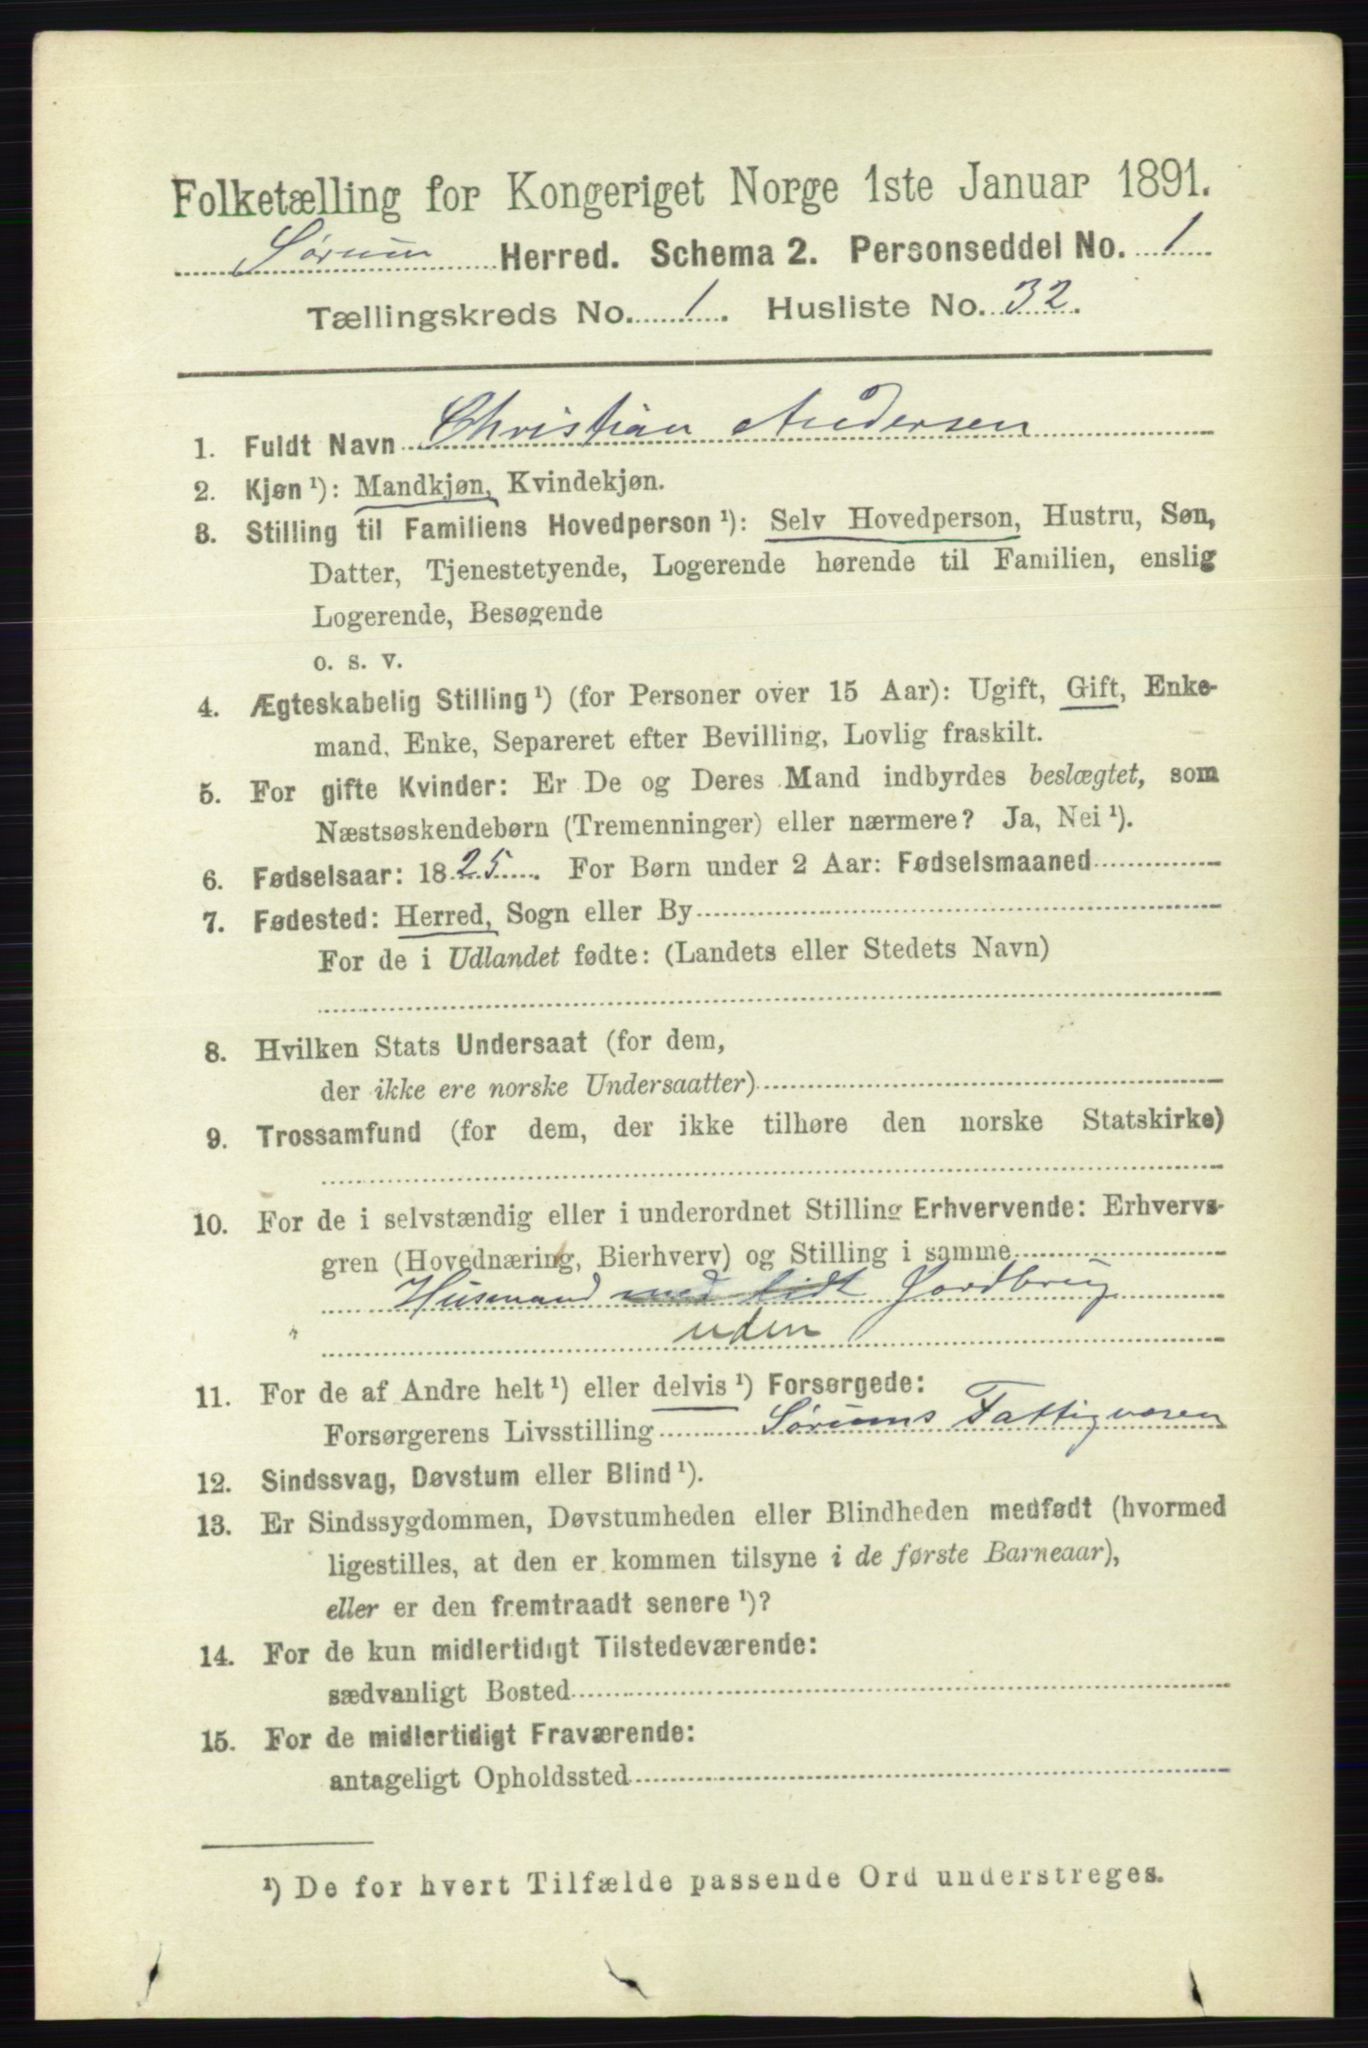 Folketælling for Kongeriget Norge 1ste Januar 1891.
Sørum Herred. Schema 2. Personseddel No. 1
Tællingskreds No. 1. Husliste No. 32.
1. Fuldt Navn Christian Andersen
2. Kjøn ¹): Mandkjøn, Kvindekjøn.
3. Stilling til Familiens Hovedperson ¹): Selv Hovedperson, Hustru, Søn,
Datter, Tjenestetyende, Logerende hørende til Familien, enslig
Logerende, Besøgende
o. s. v.
4. Ægteskabelig Stilling ¹) (for Personer over 15 Aar): Ugift, Gift, Enke-
mand, Enke, Separeret efter Bevilling, Lovlig fraskilt.
5. For gifte Kvinder: Er De og Deres Mand indbyrdes beslægtet, som
Næstsøskendebørn (Tremenninger) eller nærmere? Ja, Nei ¹).
6. Fødselsaar: 1825. For Børn under 2 Aar: Fødselsmaaned
7. Fødested: Herred, Sogn eller By
For de i Udlandet fødte: (Landets eller Stedets Navn)
8. Hvilken Stats Undersaat (for dem,
der ikke ere norske Undersaatter)
9. Trossamfund (for dem, der ikke tilhøre den norske Statskirke)
10. For de i selvstændig eller i underordnet Stilling Erhvervende: Erhvervs-
gren (Hovednæring, Bierhverv) og Stilling i samme
Husmand med lidt Jordbrug
uden
11. For de af Andre helt ¹) eller delvis ¹) Forsørgede:
Forsørgerens Livsstilling Sørums Fattigvæsen
12. Sindssvag, Døvstum eller Blind ¹).
13. Er Sindssygdommen, Døvstumheden eller Blindheden medfødt (hvormed
ligestilles, at den er kommen tilsyne i de første Barneaar),
eller er den fremtraadt senere ¹)?
14. For de kun midlertidigt Tilstedeværende:
sædvanligt Bosted
15. For de midlertidigt Fraværende:
antageligt Opholdssted
¹) De for hvert Tilfælde passende Ord understreges.